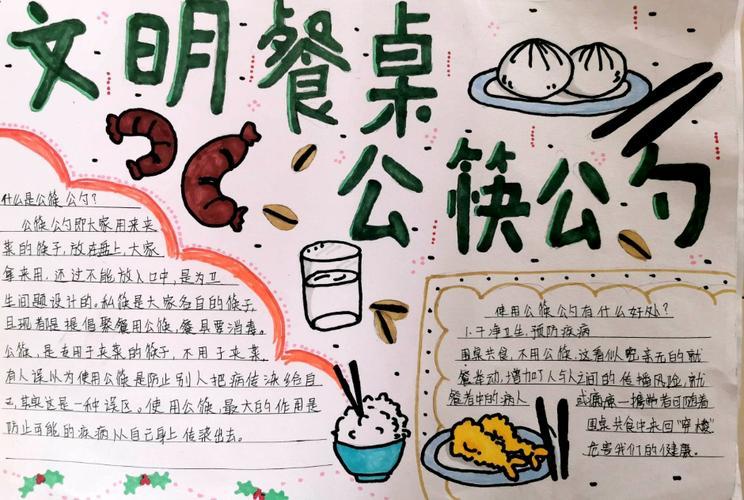 文明餐桌
公筷公勺
什么是公筷公勺?
公筷公勺即大家用来夹
菜的筷子,放在盘上,大家
拿来用,还过不能放入口中,是为卫
生问题设计的,私筷是大家各自的筷子,
且现都是提倡聚餐用公筷,餐具要消毒。
公筷,是专用于夹菜的筷子,不用于夹菜
有人误以为使用公筷是防止别人把病传染给自
己,其实这是一种误区。使用公筷,最大的作用是
防止可能的疾病从自己身上传染出去。
使用公筷公勺有什么好处?
1.干净卫生,预防疾病
围桌共食,不用公筷,这看似亲无的就
餐举动,增加了人与人之间的传播风险,就
餐者中的病人 或病病一携带者可随着
围桌共食中来回“穿梭”
危害我们的健康。